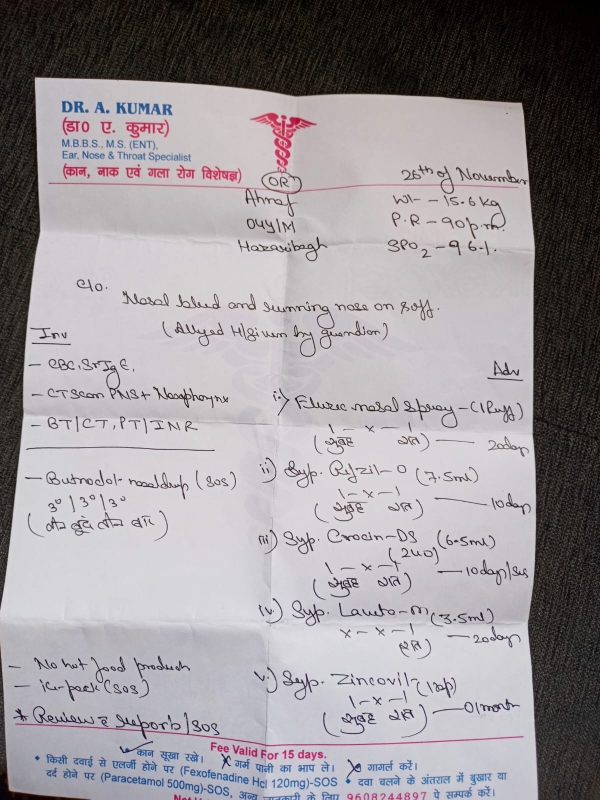 DR. A. KUMAR
(डा० ए. कुमार)
M.B.B.S., M.S. (ENT),
Ear, Nose & Throat Specialist
(कान, नाक एवं गला रोग विशेषज्ञ)
OR
26th of November
Ahnaf
04Y/M
Hazaribagh
Wt - 15.6 kg
P.R - 90 p.m.
SPO2 - 96%
C/o.
Nasal bleed and running nose on & off.
(Allyed H/given by guardian)
Inv
- CBC, Sr IgE,
- CT Scan PNS + Nasopharynx
- BT/CT, PT/INR
- nasal drop (SOS)
3° / 3° / 3°
(तीन बूंद तीन बार)
- No hot food product
- ice pack (SOS)
* Review c reports/SOS
Adv
nasal spray - (1 Puff)
1 - x - 1
(सुबह रात) - 20 day
ii) Syp. - O (7.5ml)
1 - x - 1
(सुबह रात) - 10 day
iii) Syp. Crocin-DS (6.5ml)
(240)
1 - x - 1
(सुबह रात) - 10 day/SOS
iv) Syp. - m (3.5ml)
x - x - 1
रात) - 20 day
v) Syp. Zincovit - (1 tsp)
1 - x - 1
(सुबह रात) - 01 month
Fee Valid For 15 days.
कान सूखा रखें। गर्म पानी का भाप ले। गार्गल करें।
• किसी दवाई से एलर्जी होने पर (Fexofenadine Hcl 120mg)-SOS • दवा चलने के अंतराल में बुखार या
दर्द होने पर (Paracetamol 500mg)-SOS, अन्य जानकारी के लिए 9608244897 पे सम्पर्क करें।